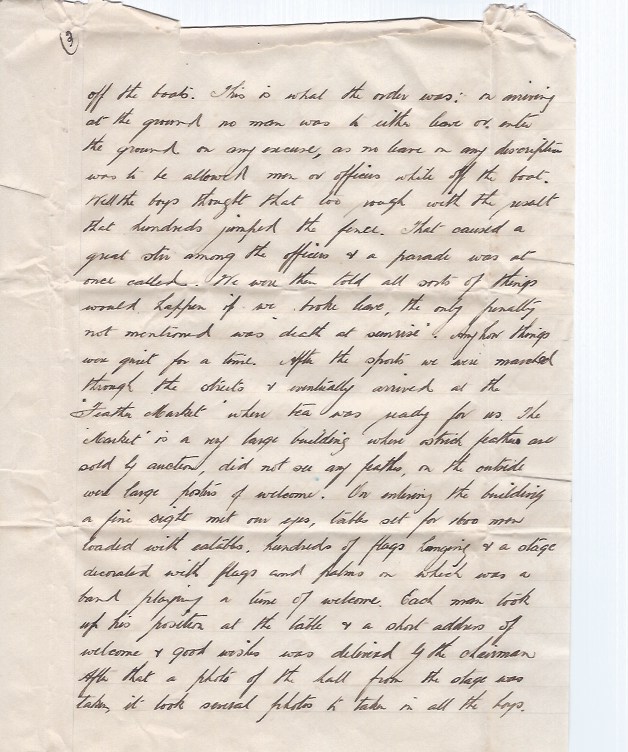 3
off the boats. This is what the order was: on arriving
at the ground no man was to either leave or enter
the ground on any excuse, as no leave on any discription
was to be allowed men or officers while off the boat.
Well the boys thought that too rough with the result
that hundreds jumped the fence. That caused a
great stir among the officers & a parade was at
once called. We were then told all sorts of things
would happen if we broke leave, the only penalty
not mentioned was "death at sunrise". Anyhow things
were quiet for a time. After the sports we were marched
through the streets & eventually arrived at the
"Feather Market" where tea was ready for us. The
"Market" is a very large building where ostrich feathers are
sold by auction, did not see any feathers, on the outside
were large posters of welcome. On entering the building
a fine sight met our eyes, tables set for 1600 men
loaded with eatables. hundreds of flags hanging & a stage
decorated with flags and palms on which was a
band playing a tune of welcome. Each man took
up his position at the table & a short address of
welcome & good wishes was delivered by the chairman
After that a photo of the hall from the stage was
taken, it took several photos to take in all the boys.